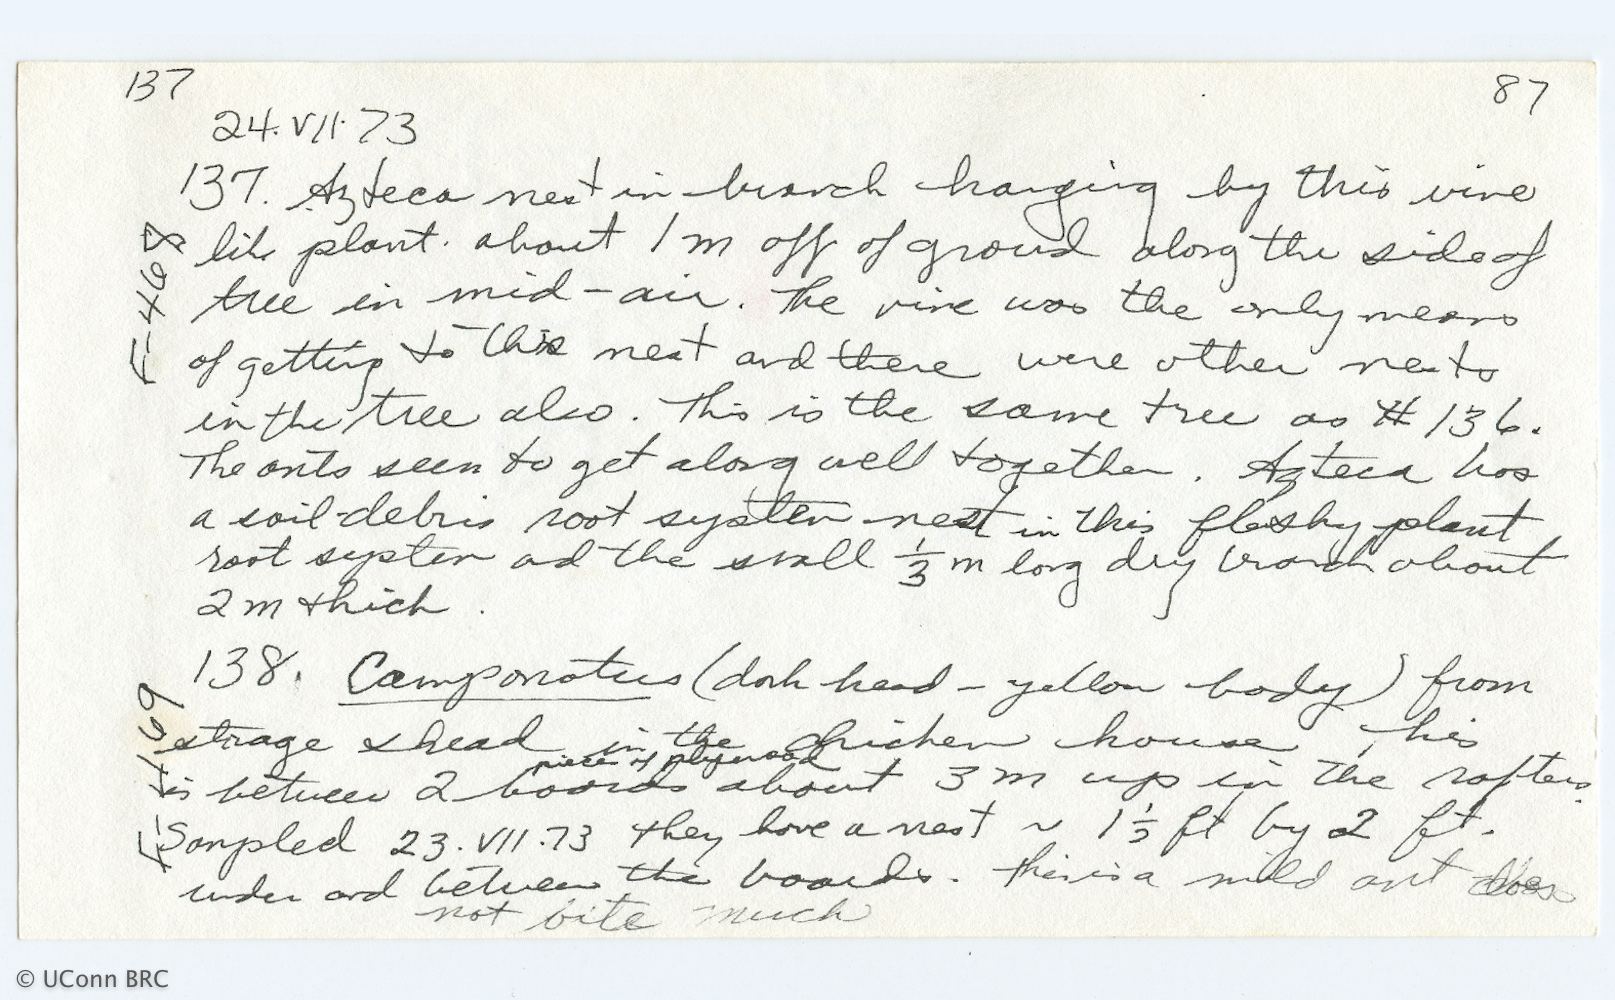 137
87
24.VII.73
137. Azteca nest in branch hanging by this vine
like plant. about 1 m off of ground along the side of
tree in mid-air. The vine was the only means
of getting to this nest and there were other nests
in the tree also. This is the same tree as # 136.
The ants seem to get along well together. Azteca has
a soil-debris root system nest in this fleshy plant
root system ad the small 1/3 m long dry branch about
2 m thick.
E-468
138. Camponotus (dark head - yellow body) from
strage shead in the chicken house, this
pieces of plywood
is between 2 boards about 3 m up in the rafters.
Sampled 23.VII.73 they have a nest ~ 1 1/2 ft by 2 ft.
under and between the boards. This is a mild ant does
not bite much
E-469
© UConn BRC